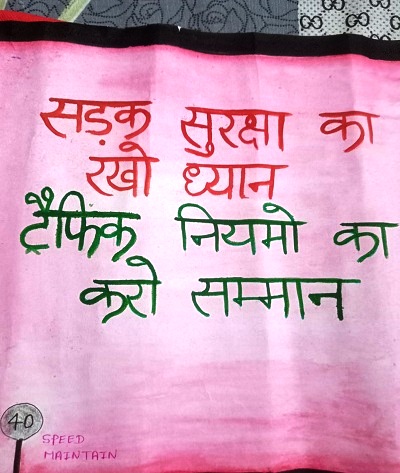 सड़क सुरक्षा का
रखो ध्यान
ट्रैफिक नियमो का
करो सम्मान
40
SPEED
MAINTAIN